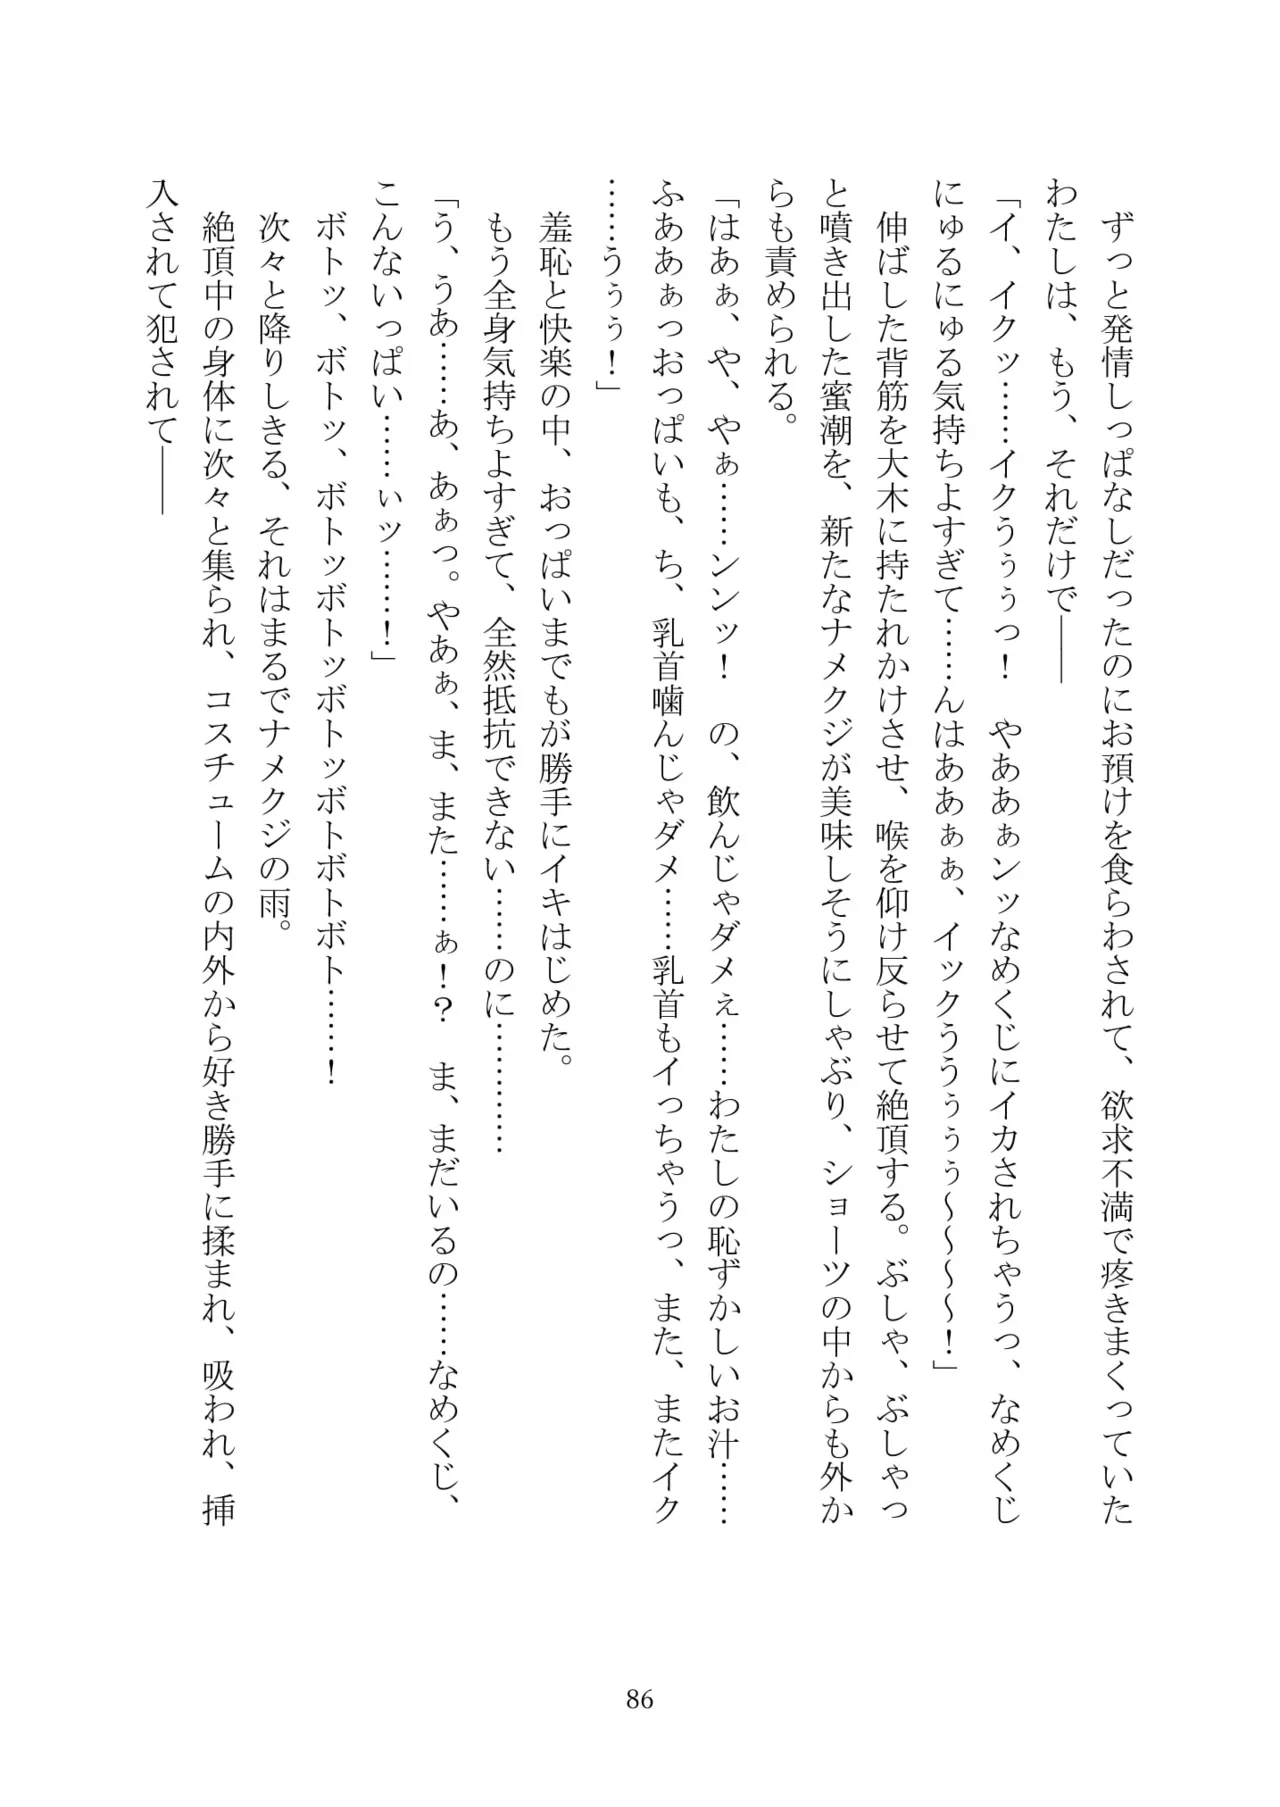 ずっと発情しっぱなしだったのにお預けを食らわされて、欲求不満で疼きまくっていた
わたしは、もう、それだけで――
「イ、イクッ……イクうぅぅっ！　やああぁンッなめくじにイカされちゃうっ、なめくじ
にゅるにゅる気持ちよすぎて……んはああぁぁ、イックうううぅぅぅ～～～～！」
伸ばした背筋を大木に持たれかけさせ、喉を仰け反らせて絶頂する。ぶしゃ、ぶしゃっ
と噴き出した蜜潮を、新たなナメクジが美味しそうにしゃぶり、ショーツの中からも外か
らも責められる。
「はあぁ、や、やぁ……ンンッ！　の、飲んじゃダメぇ……わたしの恥ずかしいお汁……
ふああぁっおっぱいも、ち、乳首噛んじゃダメ……乳首もイっちゃうっ、また、またイク
……うぅぅ！」
羞恥と快楽の中、おっぱいまでもが勝手にイキはじめた。
もう全身気持ちよすぎて、全然抵抗できない……のに…………
「う、うあ……あ、あぁっ。やあぁ、ま、また……ぁ！？　ま、まだいるの……なめくじ、
こんないっぱい……ぃッ……！」
ボトッ、ボトッ、ボトッボトッボトッボトボトボト……！
次々と降りしきる、それはまるでナメクジの雨。
絶頂中の身体に次々と集られ、コスチュームの内外から好き勝手に揉まれ、吸われ、挿
入されて犯されて――
86